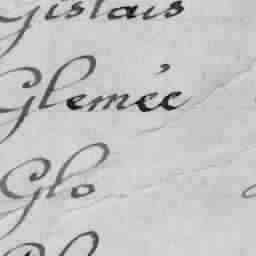 Gislais
Glemée
Glo